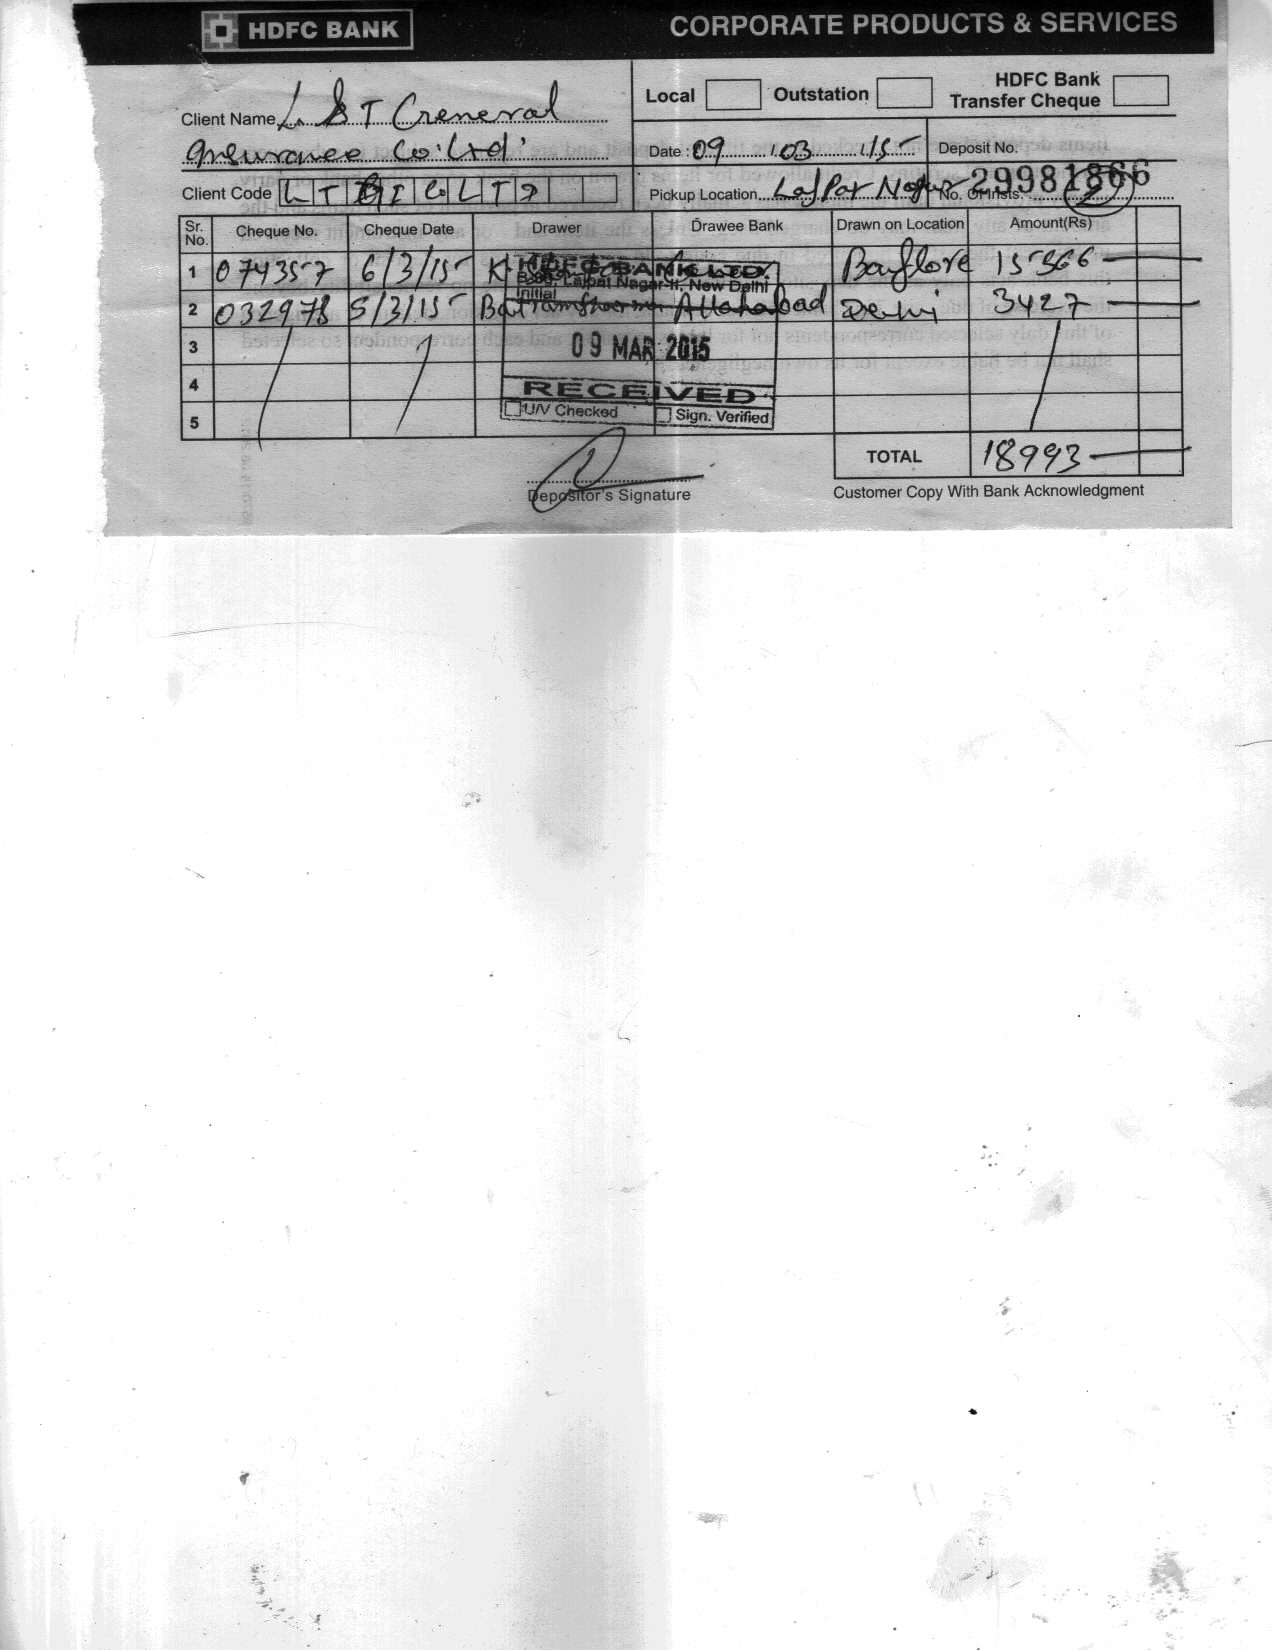 HDFC BANK CORPORATE PRODUCTS & SERVICES
Client Name L & T General
Insurance Co. Ltd.
Client Code L T G I C O L T D
Local Outstation HDFC Bank Transfer Cheque
Date : 09 / 03 / 15 Deposit No. 29981866
Pickup Location Lajpat Nagar No. Of Insts. 2
Sr. No. Cheque No. Cheque Date Drawer Drawee Bank Drawn on Location Amount(Rs)
1 074357 6/3/15 Banglore 15566
2 032978 5/3/15 Allahabad Delhi 3427
3
4
5
HDFC BANK LTD.
Lajpat Nagar-II, New Delhi
Initial
09 MAR 2015
RECEIVED
U/V Checked Sign. Verified
TOTAL 18993
Depositor's Signature
Customer Copy With Bank Acknowledgment